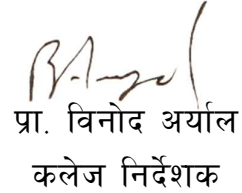 प्रा. विनोद अर्याल
कलेज निर्देशक